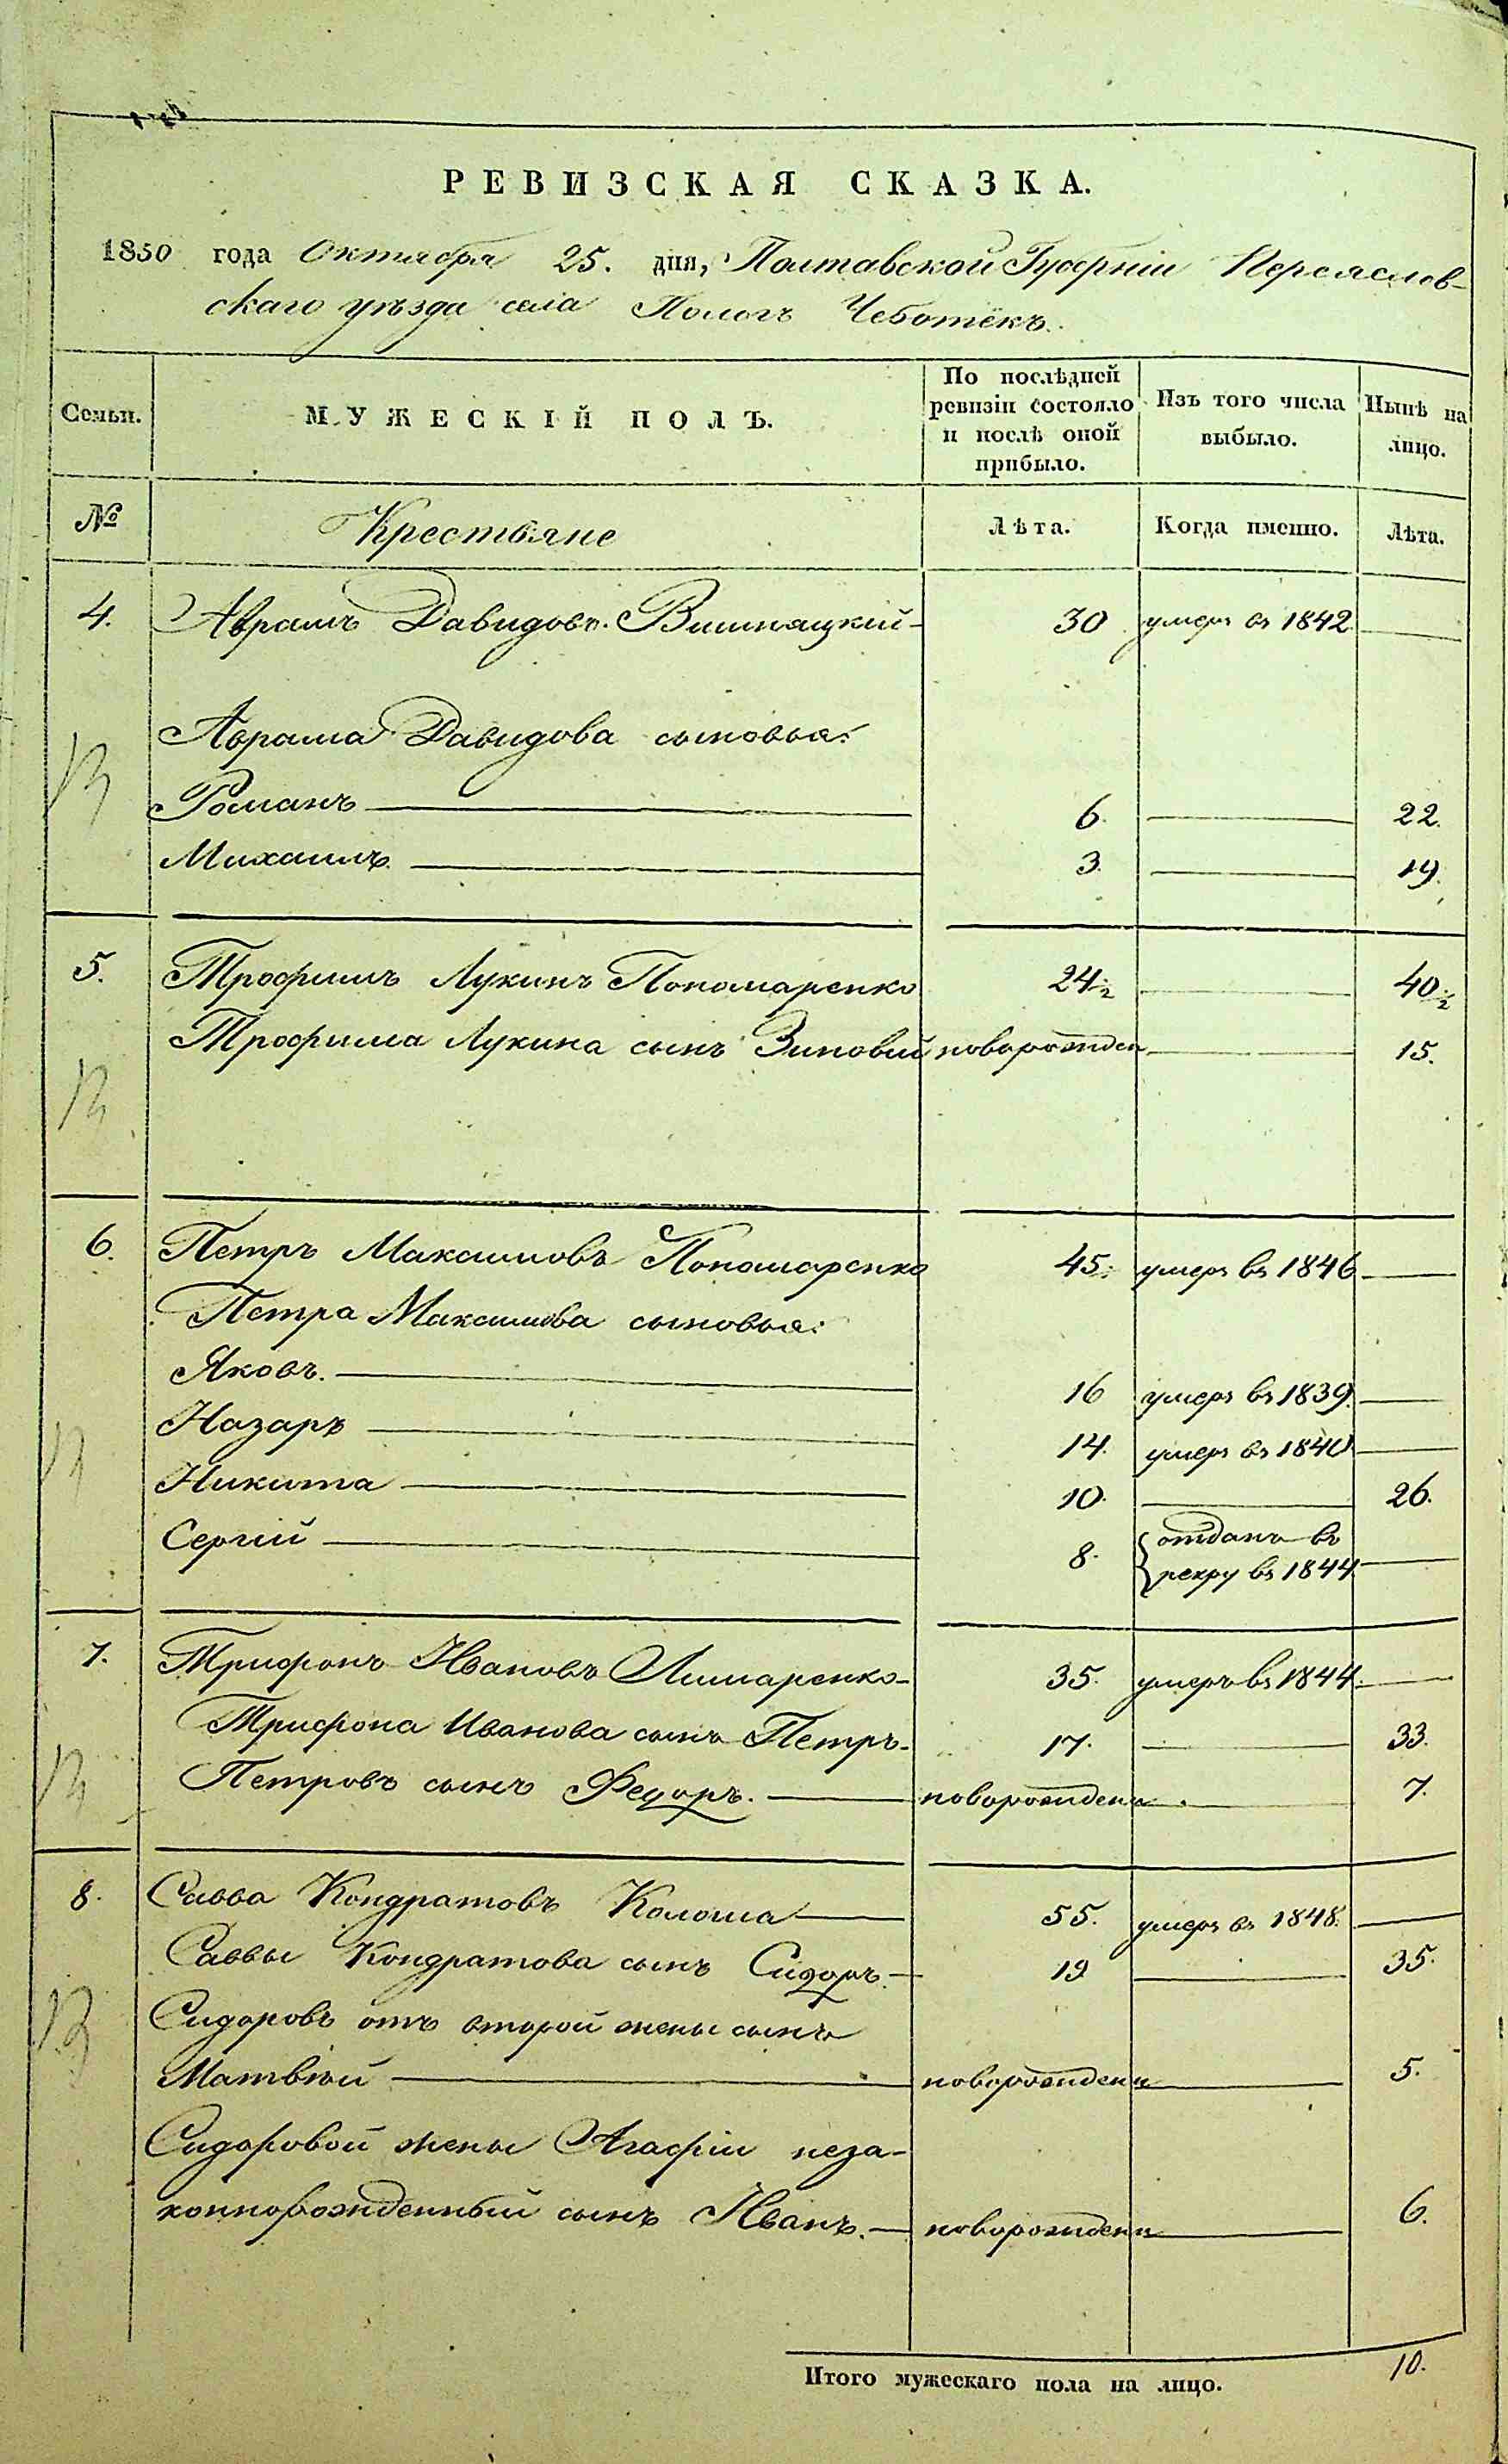 РЕВИЗСКАЯ СКАЗКА.
1850 года Октября 25. дня, Полтавской Губерніи Переяслов-
скаго уѣзда села Пологъ Чеботёкъ.
Семьи. МУЖЕСКІЙ ПОЛЪ. По послѣдней ревизіи состояло и послѣ оной прибыло. Изъ того числа выбыло. Нынѣ на лицо.
№ Крестьяне Лѣта. Когда именно. Лѣта.
4. Аврамъ Давидовъ. Вишняцкій 30 умеръ въ 1842
Аврама Давидова сыновья:
Романъ 6. 22.
Михаилъ. 3. 19.
5. Трофимъ Лукинъ Пономаренко 24½ 40½
Трофима Лукина сынъ Зиновий новорожден 15.
6. Петръ Максимовъ Пономаренко 45. умеръ въ 1846
Петра Максимова сыновья:
Яковъ. 16 умеръ въ 1839.
Назаръ 14. умеръ въ 1840
Никита 10. 26.
Сергій 8. отданъ въ
рекру въ 1844
7. Трифонъ Ивановъ Лимаренко 35. умеръ въ 1844.
Трифона Иванова сынъ Петръ. 17. 33.
Петровъ сынъ Федоръ. новорожденъ 7.
8. Савва Кондратовъ Колоша 55. умеръ въ 1848.
Саввы Кондратова сынъ Сидоръ. 19 35.
Сидоровъ отъ второй жены сынъ
Матвѣй новорожденъ 5.
Сидоровой жены Агафіи неза-
коннорожденный сынъ Иванъ. новорожденъ 6.
Итого мужескаго пола на лицо. 10.